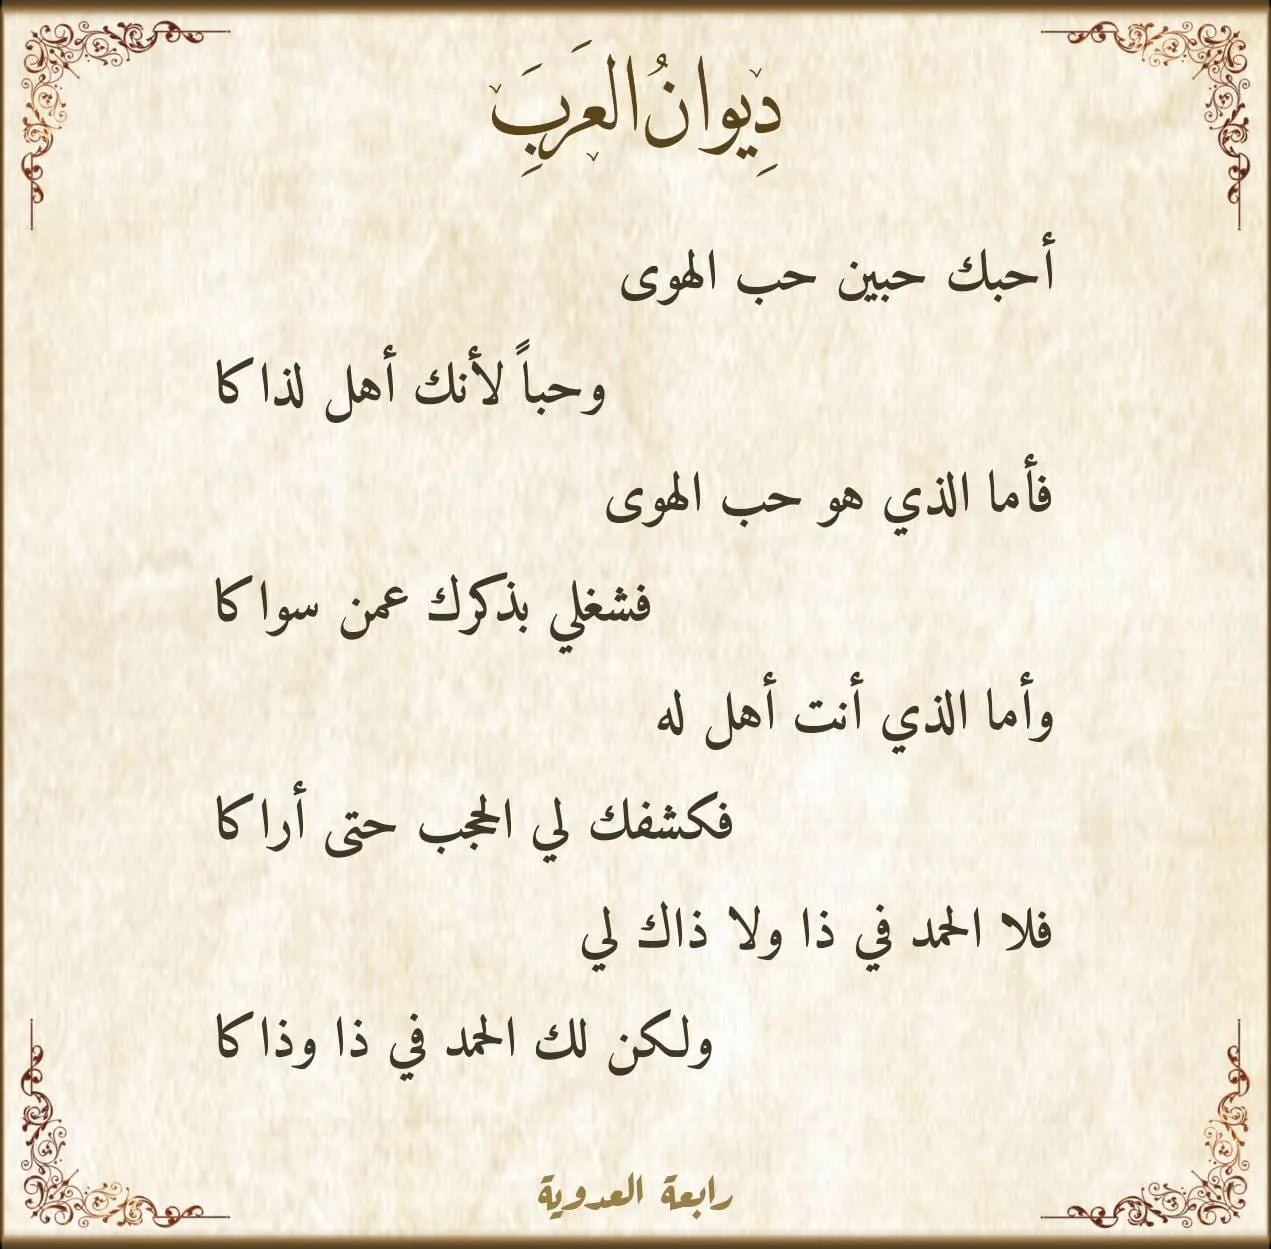 دِيوانُ العَربِ
أحبك حبين حب الهوى
وحباً لأنك أهل لذاكا
فأما الذي هو حب الهوى
فشغلي بذكرك عمن سواكا
وأما الذي أنت أهل له
فكشفك لي الحجب حتى أراكا
فلا الحمد في ذا ولا ذاك لي
ولكن لك الحمد في ذا وذاكا
رابعة العدوية